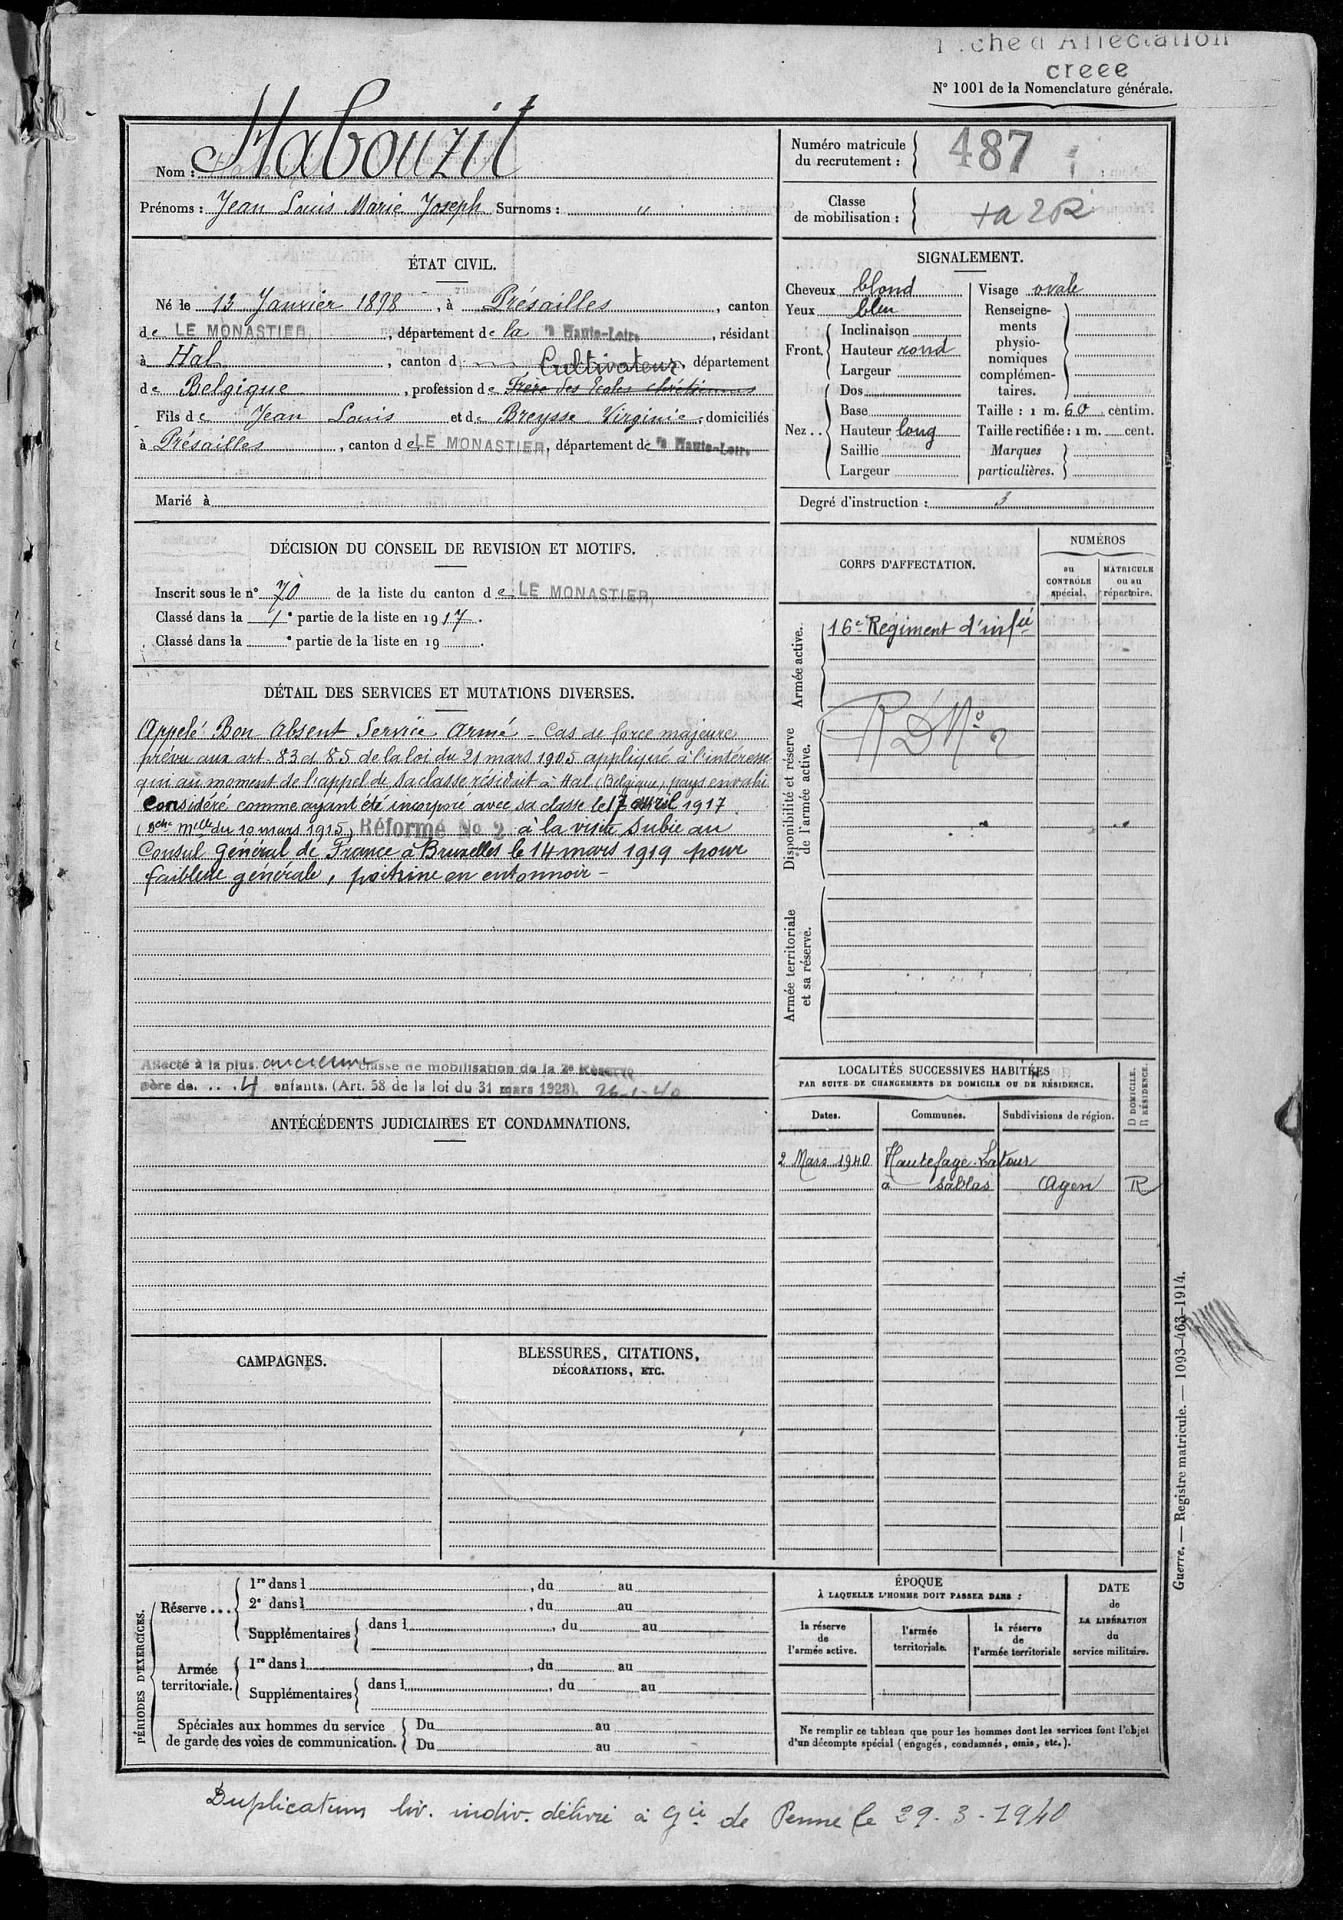 Fiche d'Affectation
creee
N° 1001 de la Nomenclature générale.
Nom : Habouzit
Prénoms : Jean Louis Marie Joseph Surnoms : "
Numéro matricule du recrutement : 487
Classe de mobilisation :
ÉTAT CIVIL.
Né le 13 Janvier 1898, à Présailles, canton
de LE MONASTIER, département de la Haute-Loire, résidant
à Hal, canton d Cultivateur, département
de Belgique, profession de Frère des Ecoles chrétiennes
Fils de Jean Louis et de Breysse Virginie, domiciliés
à Présailles, canton de LE MONASTIER, département de la Haute-Loire
Marié à
SIGNALEMENT.
Cheveux blond
Yeux bleu
Front.
Inclinaison
Hauteur rond
Largeur
Nez..
Dos
Base
Hauteur long
Saillie
Largeur
Visage ovale
Renseigne-
ments
physio-
nomiques
complémen-
taires.
Taille : 1 m. 60 centim.
Taille rectifiée : 1 m. cent.
Marques
particulières.
Degré d'instruction : 3
DÉCISION DU CONSEIL DE REVISION ET MOTIFS.
Inscrit sous le n° 70 de la liste du canton de LE MONASTIER,
Classé dans la 1e partie de la liste en 1917.
Classé dans la e partie de la liste en 19 .
CORPS D'AFFECTATION.
NUMÉROS
au
CONTRÔLE
spécial.
MATRICULE
ou au
répertoire.
Armée active.
16e Régiment d'infie
Disponibilité et réserve
de l'armée active.
RDN° 2
Armée territoriale
et sa réserve.
DÉTAIL DES SERVICES ET MUTATIONS DIVERSES.
Appelé Bon Absent Service Armé - Cas de force majeure
prévu aux art. 83 et 85 de la loi du 21 mars 1905 appliqué à l'intéressé
qui au moment de l'appel de sa classe résidait à Hal (Belgique) pays envahi
Considéré comme ayant été incorporé avec sa classe le 17 avril 1917
(Dche Mlle du 10 mars 1915) Réformé No 2 à la visite subie au
Consul général de France à Bruxelles le 14 mars 1919 pour
faiblesse générale, poitrine en entonnoir -
Affecté à la plus ancienne classe de mobilisation de la 2e Réserve
père de 4 enfants. (Art. 58 de la loi du 31 mars 1928). 26-1-40
ANTÉCÉDENTS JUDICIAIRES ET CONDAMNATIONS.
LOCALITÉS SUCCESSIVES HABITÉES
PAR SUITE DE CHANGEMENTS DE DOMICILE OU DE RÉSIDENCE.
Dates.
Communes.
Subdivisions de région.
D DOMICILE.
R RÉSIDENCE.
2 Mars 1940 Hautefage-Latour
à Sablas Agen R
CAMPAGNES.
BLESSURES, CITATIONS,
DÉCORATIONS, ETC.
PÉRIODES D'EXERCICES.
Réserve...
1re dans l , du au
2e dans l , du au
Supplémentaires dans l , du au
Armée
territoriale.
1re dans l , du au
Supplémentaires dans l , du au
Spéciales aux hommes du service
de garde des voies de communication.
Du au
Du au
ÉPOQUE
À LAQUELLE L'HOMME DOIT PASSER DANS :
la réserve
de
l'armée active.
l'armée
territoriale.
la réserve
de
l'armée territoriale
DATE
de
LA LIBÉRATION
du
service militaire.
Ne remplir ce tableau que pour les hommes dont les services font l'objet
d'un décompte spécial (engagés, condamnés, omis, etc.).
Guerre. — Registre matricule. — 1093-463-1914.
Duplicatum liv. indiv. délivré à Gie de Penne le 29-3-1940